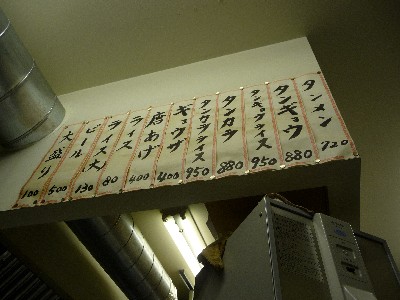 タンメン 720
タンギョウ 880
タンギョライス 950
タンカラ 880
タンカラライス 950
ギョウザ 400
唐あげ 400
ライス 80
ライス大 130
ビール 500
大盛り 100